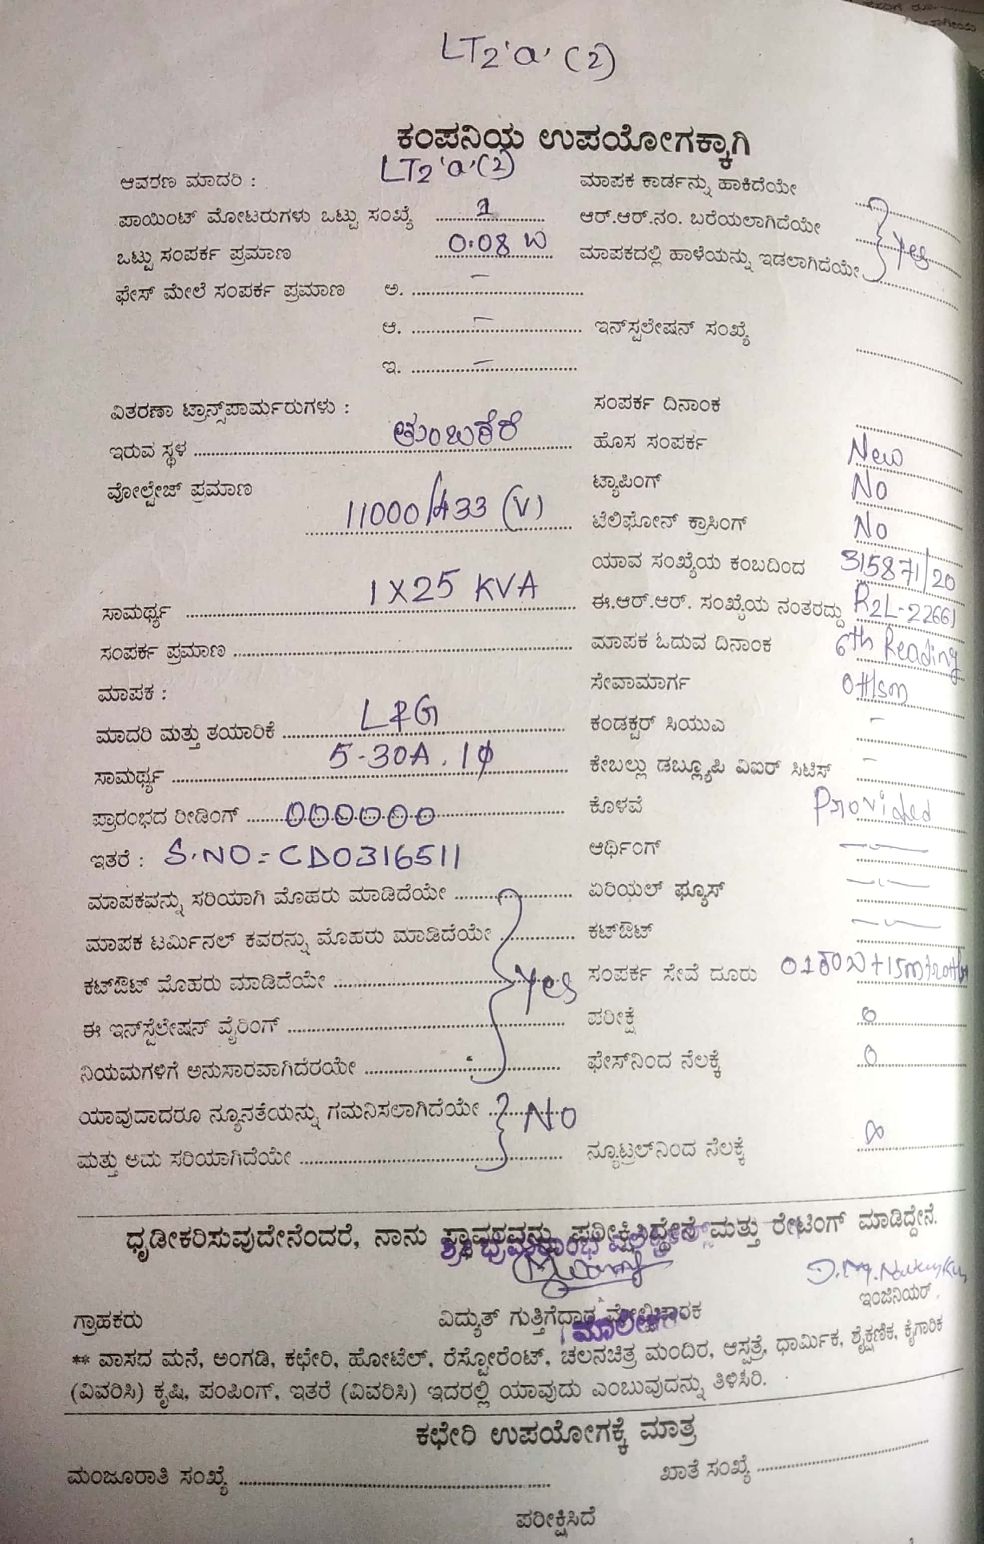 LT2'a'(2)
ಕಂಪನಿಯ ಉಪಯೋಗಕ್ಕಾಗಿ
ಆವರಣ ಮಾದರಿ : LT2'a'(2) ಮಾಪಕ ಕಾರ್ಡನ್ನು ಹಾಕಿದೆಯೇ
ಪಾಯಿಂಟ್ ಮೋಟರುಗಳು ಒಟ್ಟು ಸಂಖ್ಯೆ 1 ಆರ್.ಆರ್.ನಂ. ಬರೆಯಲಾಗಿದೆಯೇ Yes
ಒಟ್ಟು ಸಂಪರ್ಕ ಪ್ರಮಾಣ 0.08 ಮಾಪಕದಲ್ಲಿ ಹಾಳೆಯನ್ನು ಇಡಲಾಗಿದೆಯೇ
ಫೇಸ್ ಮೇಲೆ ಸಂಪರ್ಕ ಪ್ರಮಾಣ ಅ. –
ಆ. – ಇನ್‌ಸ್ಟಲೇಷನ್ ಸಂಖ್ಯೆ
ಇ. –
ವಿತರಣಾ ಟ್ರಾನ್ಸ್‌ಪಾರ್ಮರುಗಳು : ಸಂಪರ್ಕ ದಿನಾಂಕ
ಇರುವ ಸ್ಥಳ ತುಂಬುಕೆರೆ ಹೊಸ ಸಂಪರ್ಕ New
ವೋಲ್ಟೇಜ್ ಪ್ರಮಾಣ ಟ್ಯಾಪಿಂಗ್ No
11000/433 (V) ಟೆಲಿಫೋನ್ ಕ್ರಾಸಿಂಗ್ No
ಯಾವ ಸಂಖ್ಯೆಯ ಕಂಬದಿಂದ 315871/20
ಸಾಮರ್ಥ್ಯ 1X25 KVA ಈ.ಆರ್.ಆರ್. ಸಂಖ್ಯೆಯ ನಂತರದ್ದು R2L-22661
ಸಂಪರ್ಕ ಪ್ರಮಾಣ ಮಾಪಕ ಓದುವ ದಿನಾಂಕ 6th Reading
ಮಾಪಕ : ಸೇವಾಮಾರ್ಗ
ಮಾದರಿ ಮತ್ತು ತಯಾರಿಕೆ L&G ಕಂಡಕ್ಟರ್ ಸಿಯುಎ –
ಸಾಮರ್ಥ್ಯ 5-30A. 1ϕ ಕೇಬಲ್ಲು ಡಬ್ಲ್ಯೂಪಿ ವಿಐರ್ ಸಿಟಿಸ್ –
ಪ್ರಾರಂಭದ ರೀಡಿಂಗ್ 000000 ಕೊಳವೆ Provided
ಇತರೆ : S.NO=CD0316511 ಆರ್ಥಿಂಗ್ –"–
ಮಾಪಕವನ್ನು ಸರಿಯಾಗಿ ಮೊಹರು ಮಾಡಿದೆಯೇ ಏರಿಯಲ್ ಫ್ಯೂಸ್ –"–
ಮಾಪಕ ಟರ್ಮಿನಲ್ ಕವರನ್ನು ಮೊಹರು ಮಾಡಿದೆಯೇ ಕಟ್‌ಔಟ್ –"–
ಕಟ್‌ಔಟ್ ಮೊಹರು ಮಾಡಿದೆಯೇ Yes ಸಂಪರ್ಕ ಸೇವೆ ದೂರು
ಈ ಇನ್‌ಸ್ಟೆಲೇಷನ್ ವೈರಿಂಗ್ ಪರೀಕ್ಷೆ
ನಿಯಮಗಳಿಗೆ ಅನುಸಾರವಾಗಿದೆರಯೇ ಫೇಸ್‌ನಿಂದ ನೆಲಕ್ಕೆ
ಯಾವುದಾದರೂ ನ್ಯೂನತೆಯನ್ನು ಗಮನಿಸಲಾಗಿದೆಯೇ No
ಮತ್ತು ಅದು ಸರಿಯಾಗಿದೆಯೇ ನ್ಯೂಟ್ರಲ್‌ನಿಂದ ನೆಲಕ್ಕೆ ∞
ಧೃಡೀಕರಿಸುವುದೇನೆಂದರೆ, ನಾನು ಸ್ಥಾವರವನ್ನು ಪರೀಕ್ಷಿಸಿದ್ದೇನೆ ಮತ್ತು ರೇಟಿಂಗ್ ಮಾಡಿದ್ದೇನೆ.
ಗ್ರಾಹಕರು ವಿದ್ಯುತ್ ಗುತ್ತಿಗೆದಾರ ಮೇಲ್ವಿಚಾರಕ ಇಂಜಿನಿಯರ್
ಮಾಲೀಕರು
** ವಾಸದ ಮನೆ, ಅಂಗಡಿ, ಕಛೇರಿ, ಹೋಟೆಲ್, ರೆಸ್ಟೋರೆಂಟ್, ಚಲನಚಿತ್ರ ಮಂದಿರ, ಆಸ್ಪತ್ರೆ, ಧಾರ್ಮಿಕ, ಶೈಕ್ಷಣಿಕ, ಕೈಗಾರಿಕ
(ವಿವರಿಸಿ) ಕೃಷಿ, ಪಂಪಿಂಗ್, ಇತರೆ (ವಿವರಿಸಿ) ಇದರಲ್ಲಿ ಯಾವುದು ಎಂಬುವುದನ್ನು ತಿಳಿಸಿರಿ.
ಕಛೇರಿ ಉಪಯೋಗಕ್ಕೆ ಮಾತ್ರ
ಮಂಜೂರಾತಿ ಸಂಖ್ಯೆ ಖಾತೆ ಸಂಖ್ಯೆ
ಪರೀಕ್ಷಿಸಿದೆ